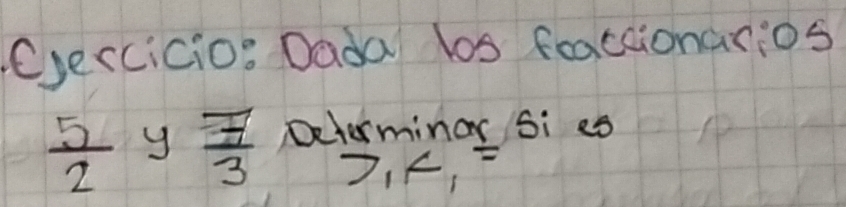 .Ejercicio: Dada los fraccionarios
5/2 y 7/3 Determinar si es
>, <, =